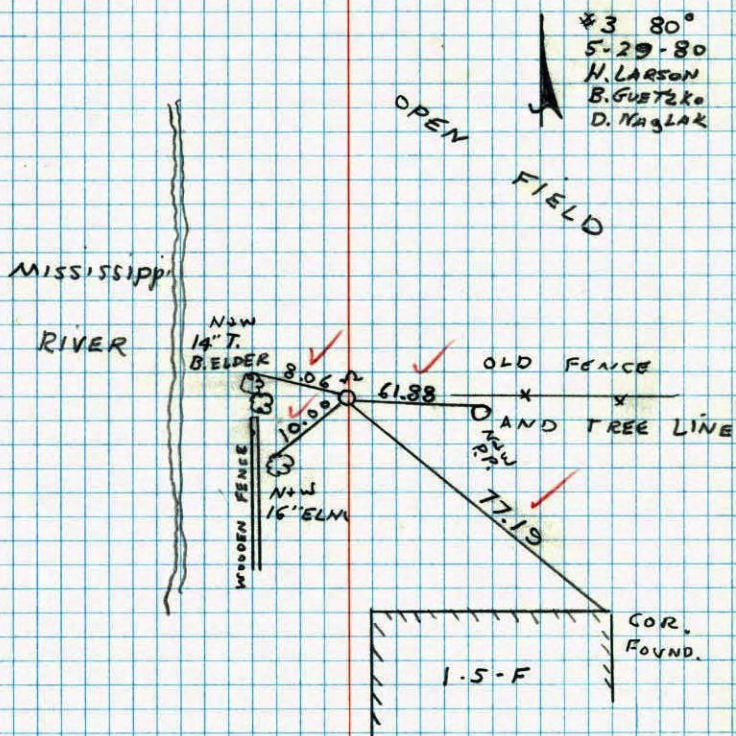 #3 80°
5-29-80
H. LARSON
B. GUETZKO
D. NAGLAK
OPEN
FIELD
MISSISSIPPI
RIVER
N&W
14" T.
B. ELDER
8.06
61.88
OLD FENCE
AND TREE LINE
N&W
P.P.
10.00
N&W
16" ELM
WOODEN FENCE
77.19
COR.
FOUND.
1.5-F